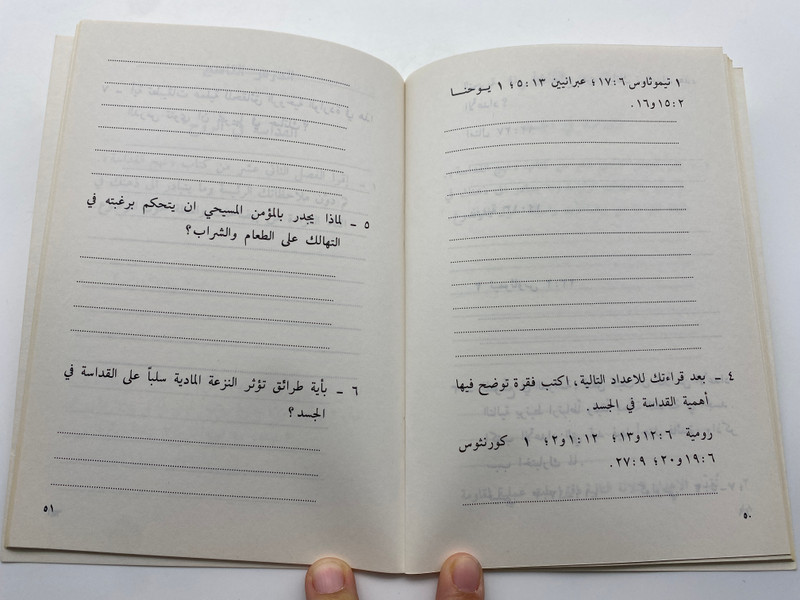 ١ تيموثاوس ٦:‏١٧؛ عبرانيين ١٣:‏٥؛ ١ يوحنا
٢:‏١٥و١٦.
٤ - بعد قراءتك للاعداد التالية، اكتب فقرة توضح فيها
أهمية القداسة في الجسد.
رومية ٦:‏١٢و١٣؛ ١٢:‏١و٢؛ ١ كورنثوس
٦:‏١٩و٢٠؛ ٩:‏٢٧.
٥٠
٥ - لماذا يجدر بالمؤمن المسيحي ان يتحكم برغبته في
التهالك على الطعام والشراب؟
٦ - بأية طرائق تؤثر النزعة المادية سلباً على القداسة في
الجسد؟
٥١